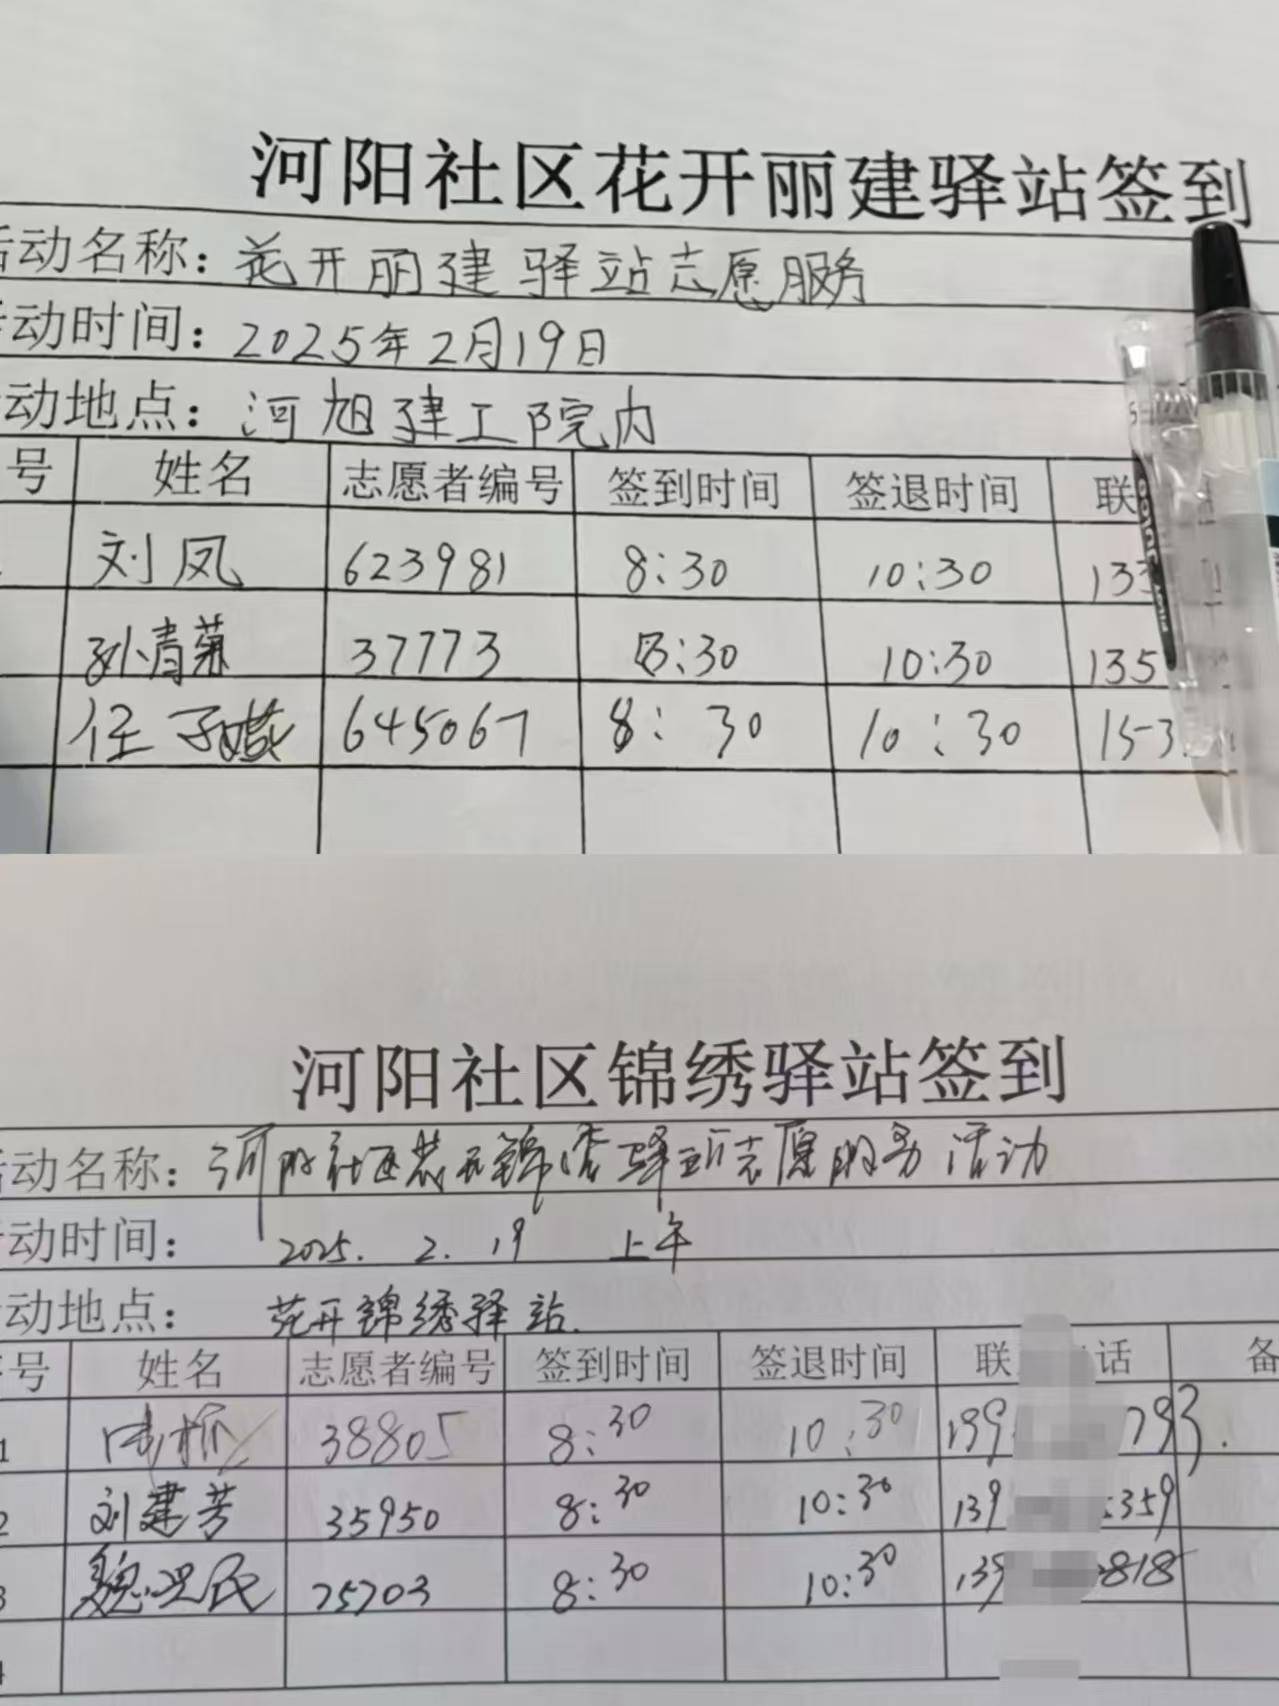 河阳社区花开丽建驿站签到
活动名称：花开丽建驿站志愿服务
活动时间：2025年2月19日
动地点：河旭建工院内
号 姓名 志愿者编号 签到时间 签退时间 联
刘凤 623981 8:30 10:30 133
孙清菊 37773 8:30 10:30 135
任子 645067 8:30 10:30 153
河阳社区锦绣驿站签到
活动名称：河阳社区花开锦绣驿站志愿服务活动
动时间：2025.2.19 上午
动地点：花开锦绣驿站.
号 姓名 志愿者编号 签到时间 签退时间 联 话 备
1 38805 8:30 10:30 139 793.
2 刘建芳 35950 8:30 10:30 139 359
3 魏兴民 75703 8:30 10:30 139 818
4